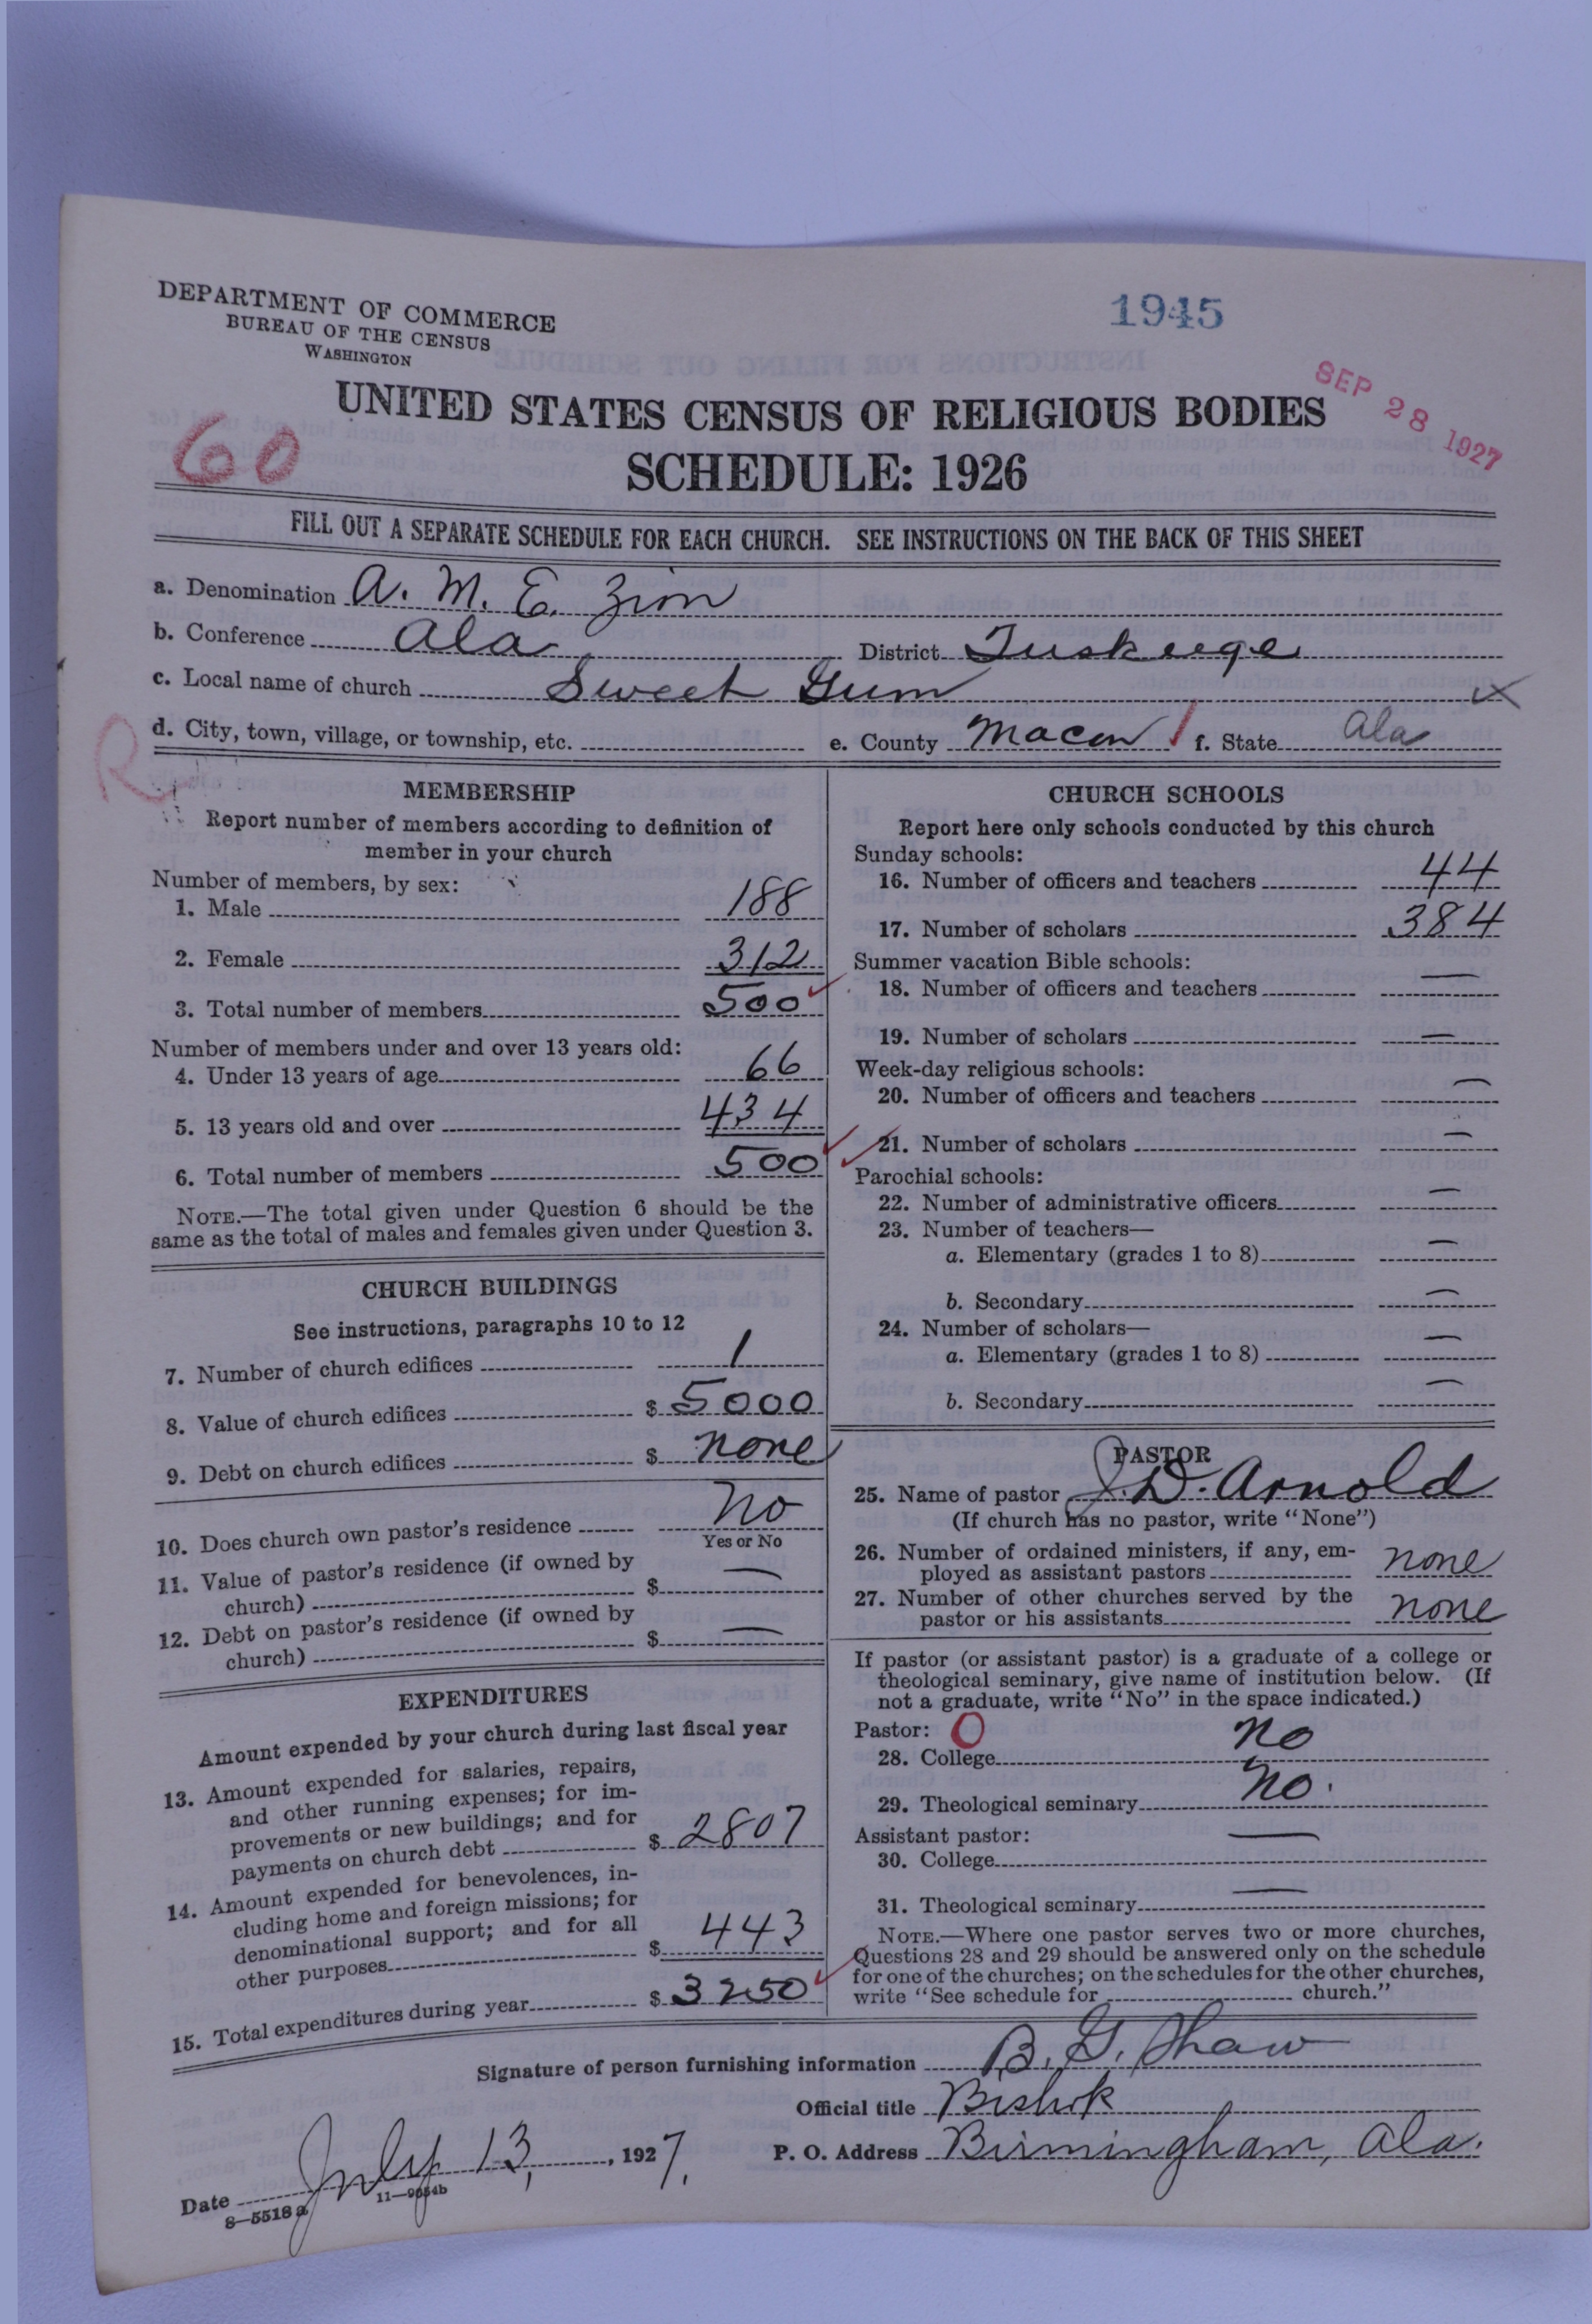 DEPARTMENT OF COMMERCE
BUREAU OF THE CENSUS
WASHINGTON
1945
SEP 28 1927
60
UNITED STATES CENSUS OF RELIGIOUS BODIES
SCHEDULE: 1926
FILL OUT A SEPARATE SCHEDULE FOR EACH CHURCH. SEE INSTRUCTIONS ON THE BACK OF THIS SHEET
a. Denomination A. M. E. Zion
b. Conference Ala District Tuskeege
c. Local name of church Sweet Gum X
R
d. City, town, village, or township, etc. e. County Macon f. State Ala
MEMBERSHIP
Report number of members according to definition of
member in your church
Number of members, by sex:
1. Male 188
2. Female 312
3. Total number of members 500
Number of members under and over 13 years old:
4. Under 13 years of age 66
5. 13 years old and over 434
6. Total number of members 500
NOTE.—The total given under Question 6 should be the
same as the total of males and females given under Question 3.
CHURCH BUILDINGS
See instructions, paragraphs 10 to 12
7. Number of church edifices 1
8. Value of church edifices $ 5000
9. Debt on church edifices $ none
10. Does church own pastor's residence No
Yes or No
11. Value of pastor's residence (if owned by
church) $ —
12. Debt on pastor's residence (if owned by
church) $ —
EXPENDITURES
Amount expended by your church during last fiscal year
13. Amount expended for salaries, repairs,
and other running expenses; for im-
provements or new buildings; and for
payments on church debt $ 2807
14. Amount expended for benevolences, in-
cluding home and foreign missions; for
denominational support; and for all
other purposes $ 443
15. Total expenditures during year $ 3250
CHURCH SCHOOLS
Report here only schools conducted by this church
Sunday schools:
16. Number of officers and teachers 44
17. Number of scholars 384
Summer vacation Bible schools:
18. Number of officers and teachers —
19. Number of scholars —
Week-day religious schools:
20. Number of officers and teachers —
21. Number of scholars —
Parochial schools:
22. Number of administrative officers —
23. Number of teachers—
a. Elementary (grades 1 to 8) —
b. Secondary —
24. Number of scholars—
a. Elementary (grades 1 to 8) —
b. Secondary —
PASTOR
25. Name of pastor J. D. Arnold
(If church has no pastor, write "None")
26. Number of ordained ministers, if any, em-
ployed as assistant pastors none
27. Number of other churches served by the
pastor or his assistants none
If pastor (or assistant pastor) is a graduate of a college or
theological seminary, give name of institution below. (If
not a graduate, write "No" in the space indicated.)
Pastor: 0
28. College no
29. Theological seminary no.
Assistant pastor:
30. College —
31. Theological seminary —
NOTE.—Where one pastor serves two or more churches,
Questions 28 and 29 should be answered only on the schedule
for one of the churches; on the schedules for the other churches,
write "See schedule for church."
Signature of person furnishing information B. G. Shaw
Official title Bishop
Date July 13, 1927. P. O. Address Birmingham, Ala.
8—5518 a 11—9054b